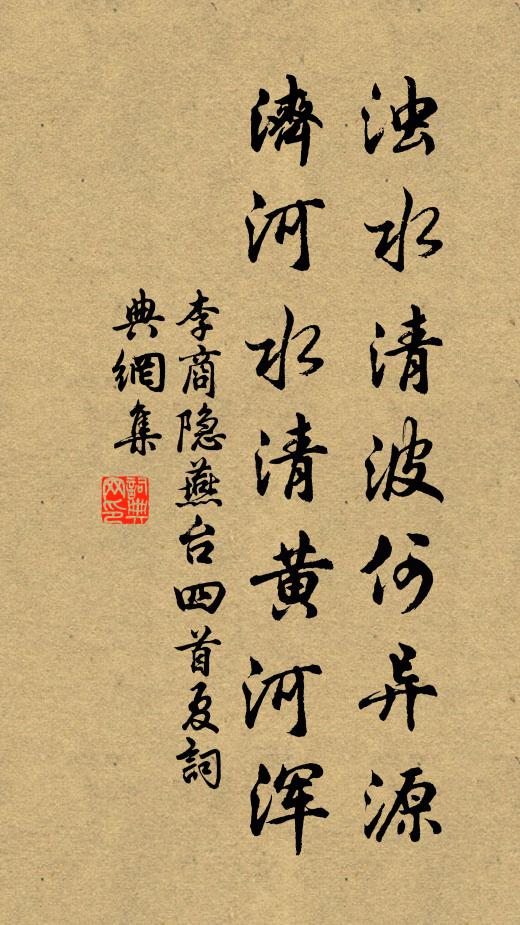 浊水清波何异源
濟河水清黄河浑
李商隐燕台四首夏詞
典網集
詞典
网印